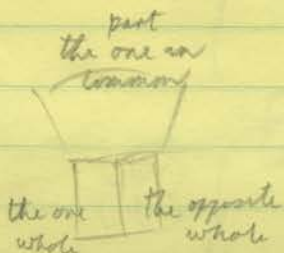 part
the one in
common
the one
whole
the opposite
whole